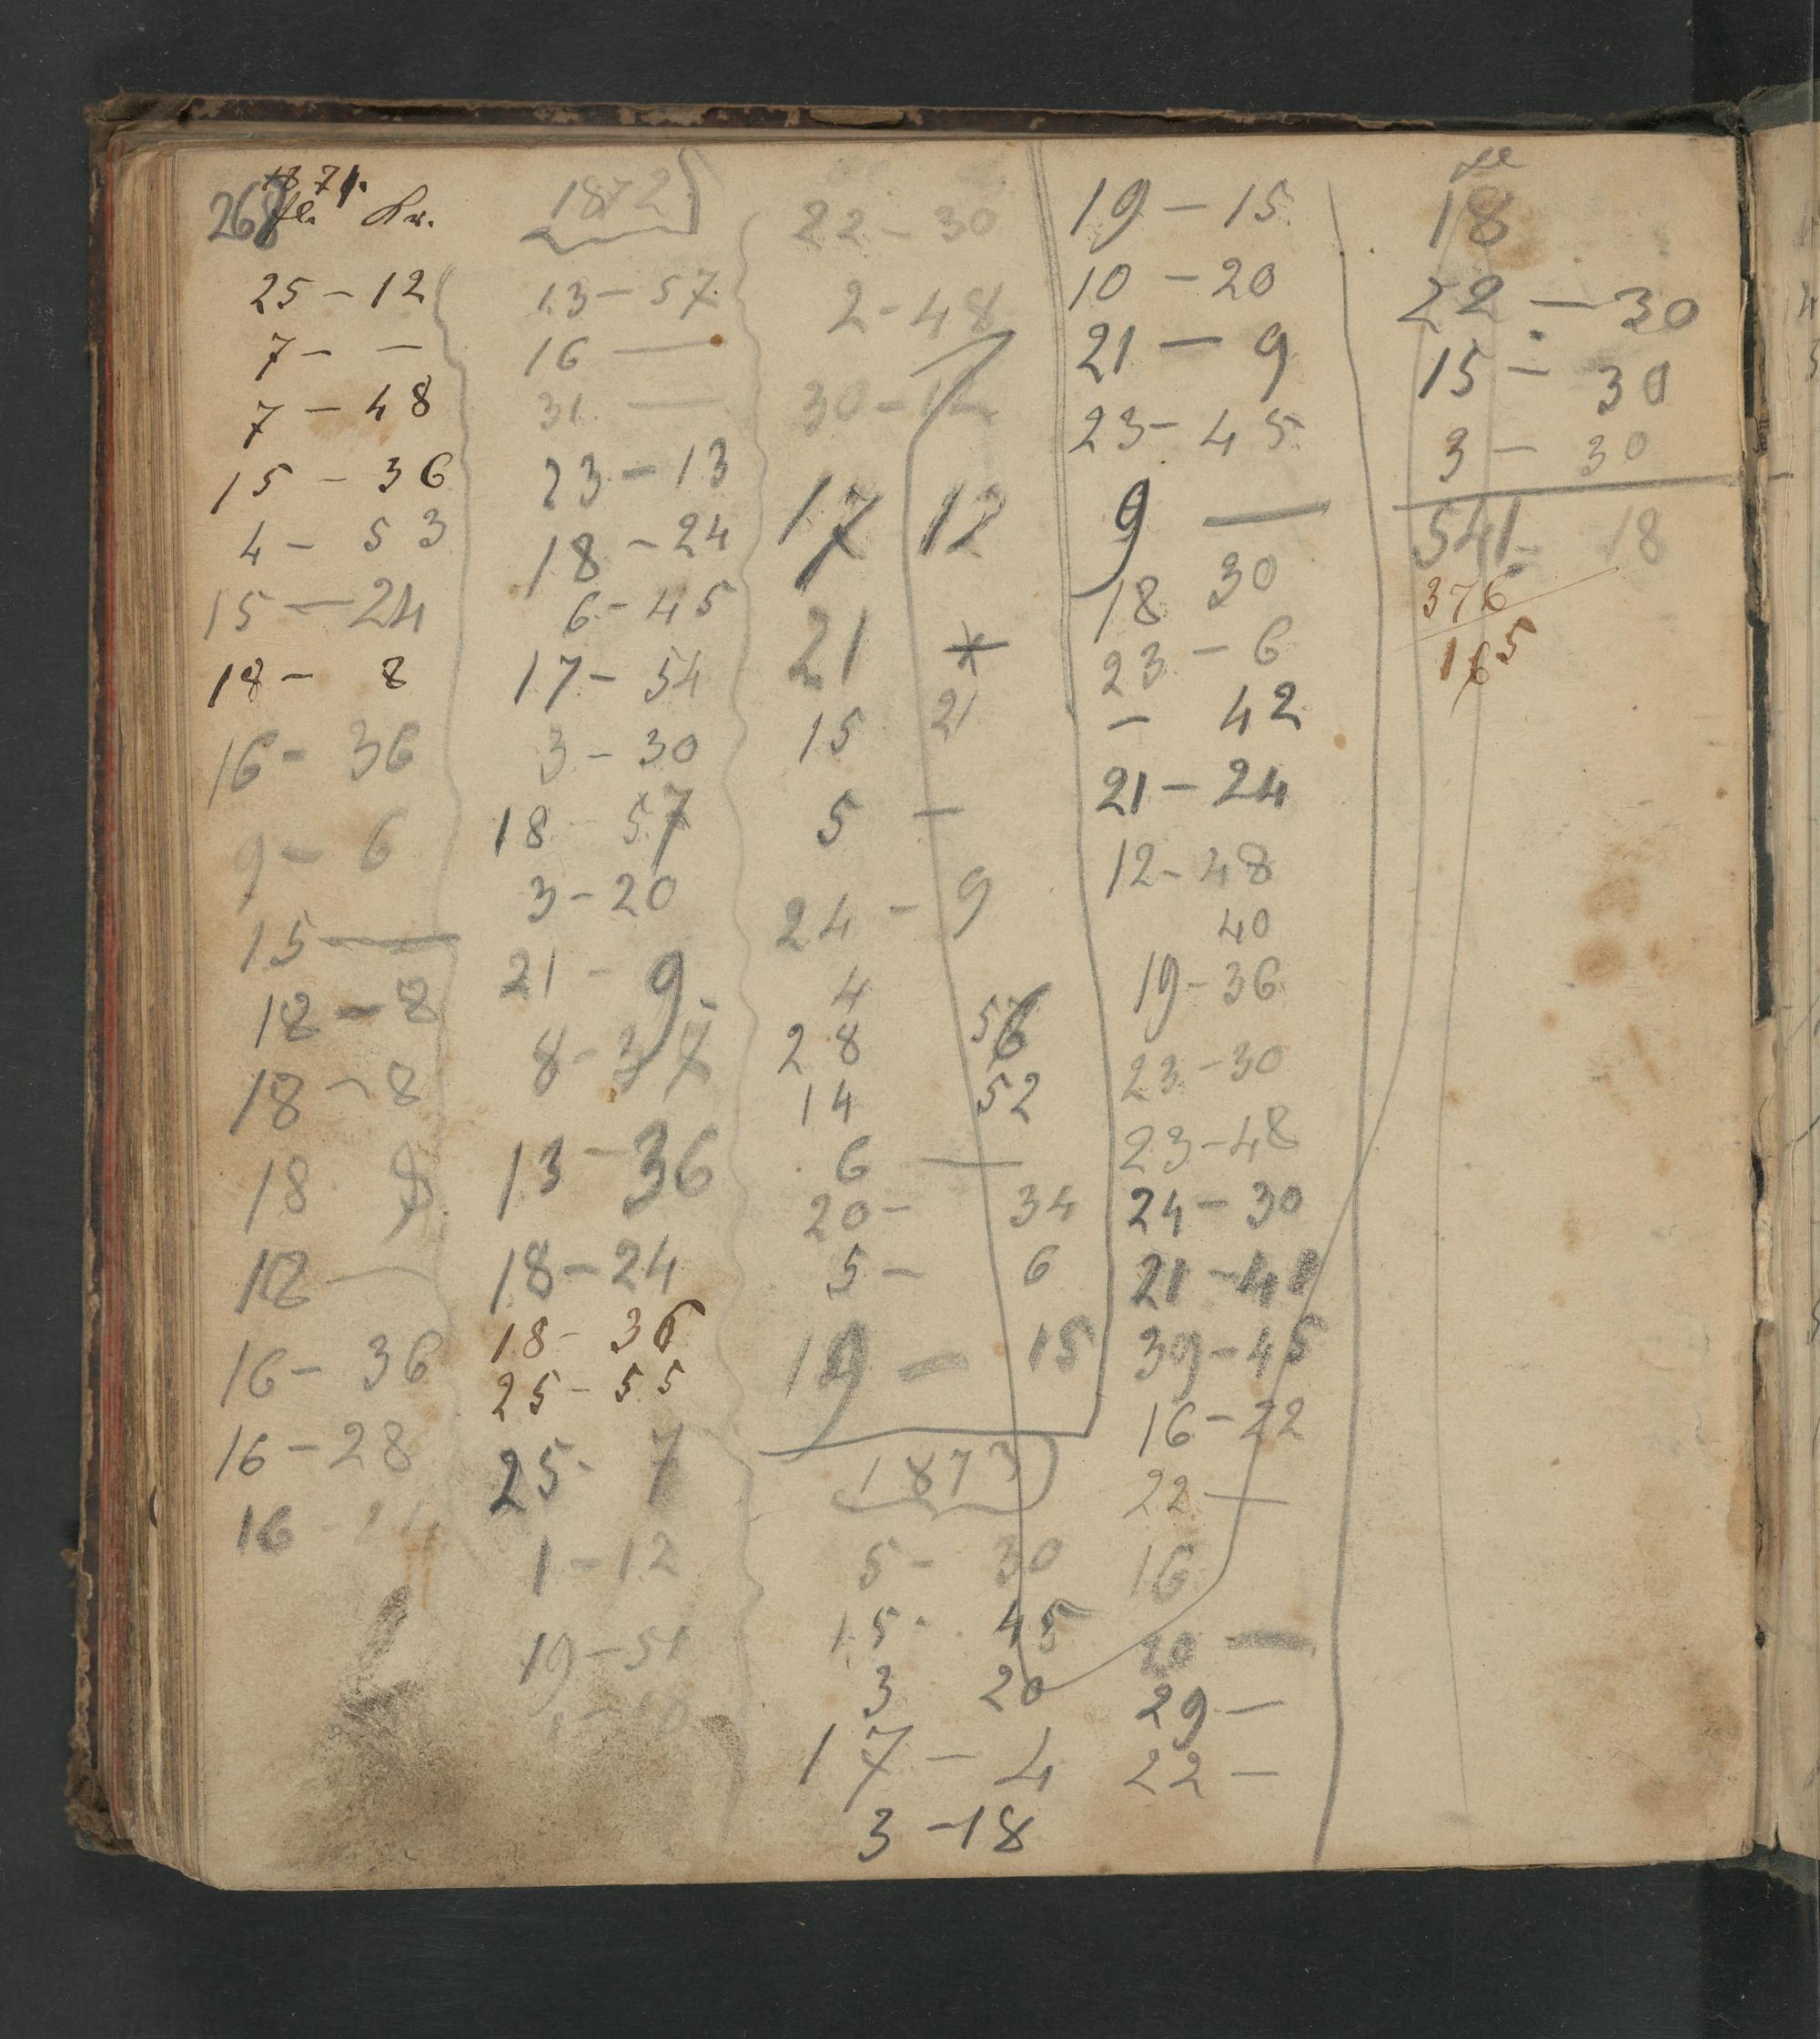 268
1871.
fl. Kr.
25 - 12
7 - -
7 - 48
15 - 36
4 - 53
15 - 24
18 - 8
16 - 36
9 - 6
15 —
18 - 8
18 - 8
18
18 —
16 - 36
16 - 28
16
1872
13 - 57
16 —
31 —
23 - 13
18 - 24
6 - 45
17 - 54
3 - 30
18 - 57
3 - 20
21 - 9
8 - 37
13 - 36
18 - 24
18 - 36
25 - 55
25 - 7
1 - 12
19 - 51
22 - 30
2 - 48
30 - 12
17 12
21
15 21
5 -
24 - 9
4
28 56
14 52
6 —
20 - 34
5 - 6
19 - 15
1873
5 - 30
15 - 45
3 20
17 - 4
3 - 18
19 - 15
10 - 20
21 - 9
23 - 45
9 —
18 30
23 - 6
- 42
21 - 24
12 - 48
40
19 - 36
23 - 30
23 - 48
24 - 30
21 - 41
39 - 45
16 - 22
22 —
16
20 —
29 -
22 -
fl
18
22 - 30
15 - 30
3 - 30
541 - 18
376
165